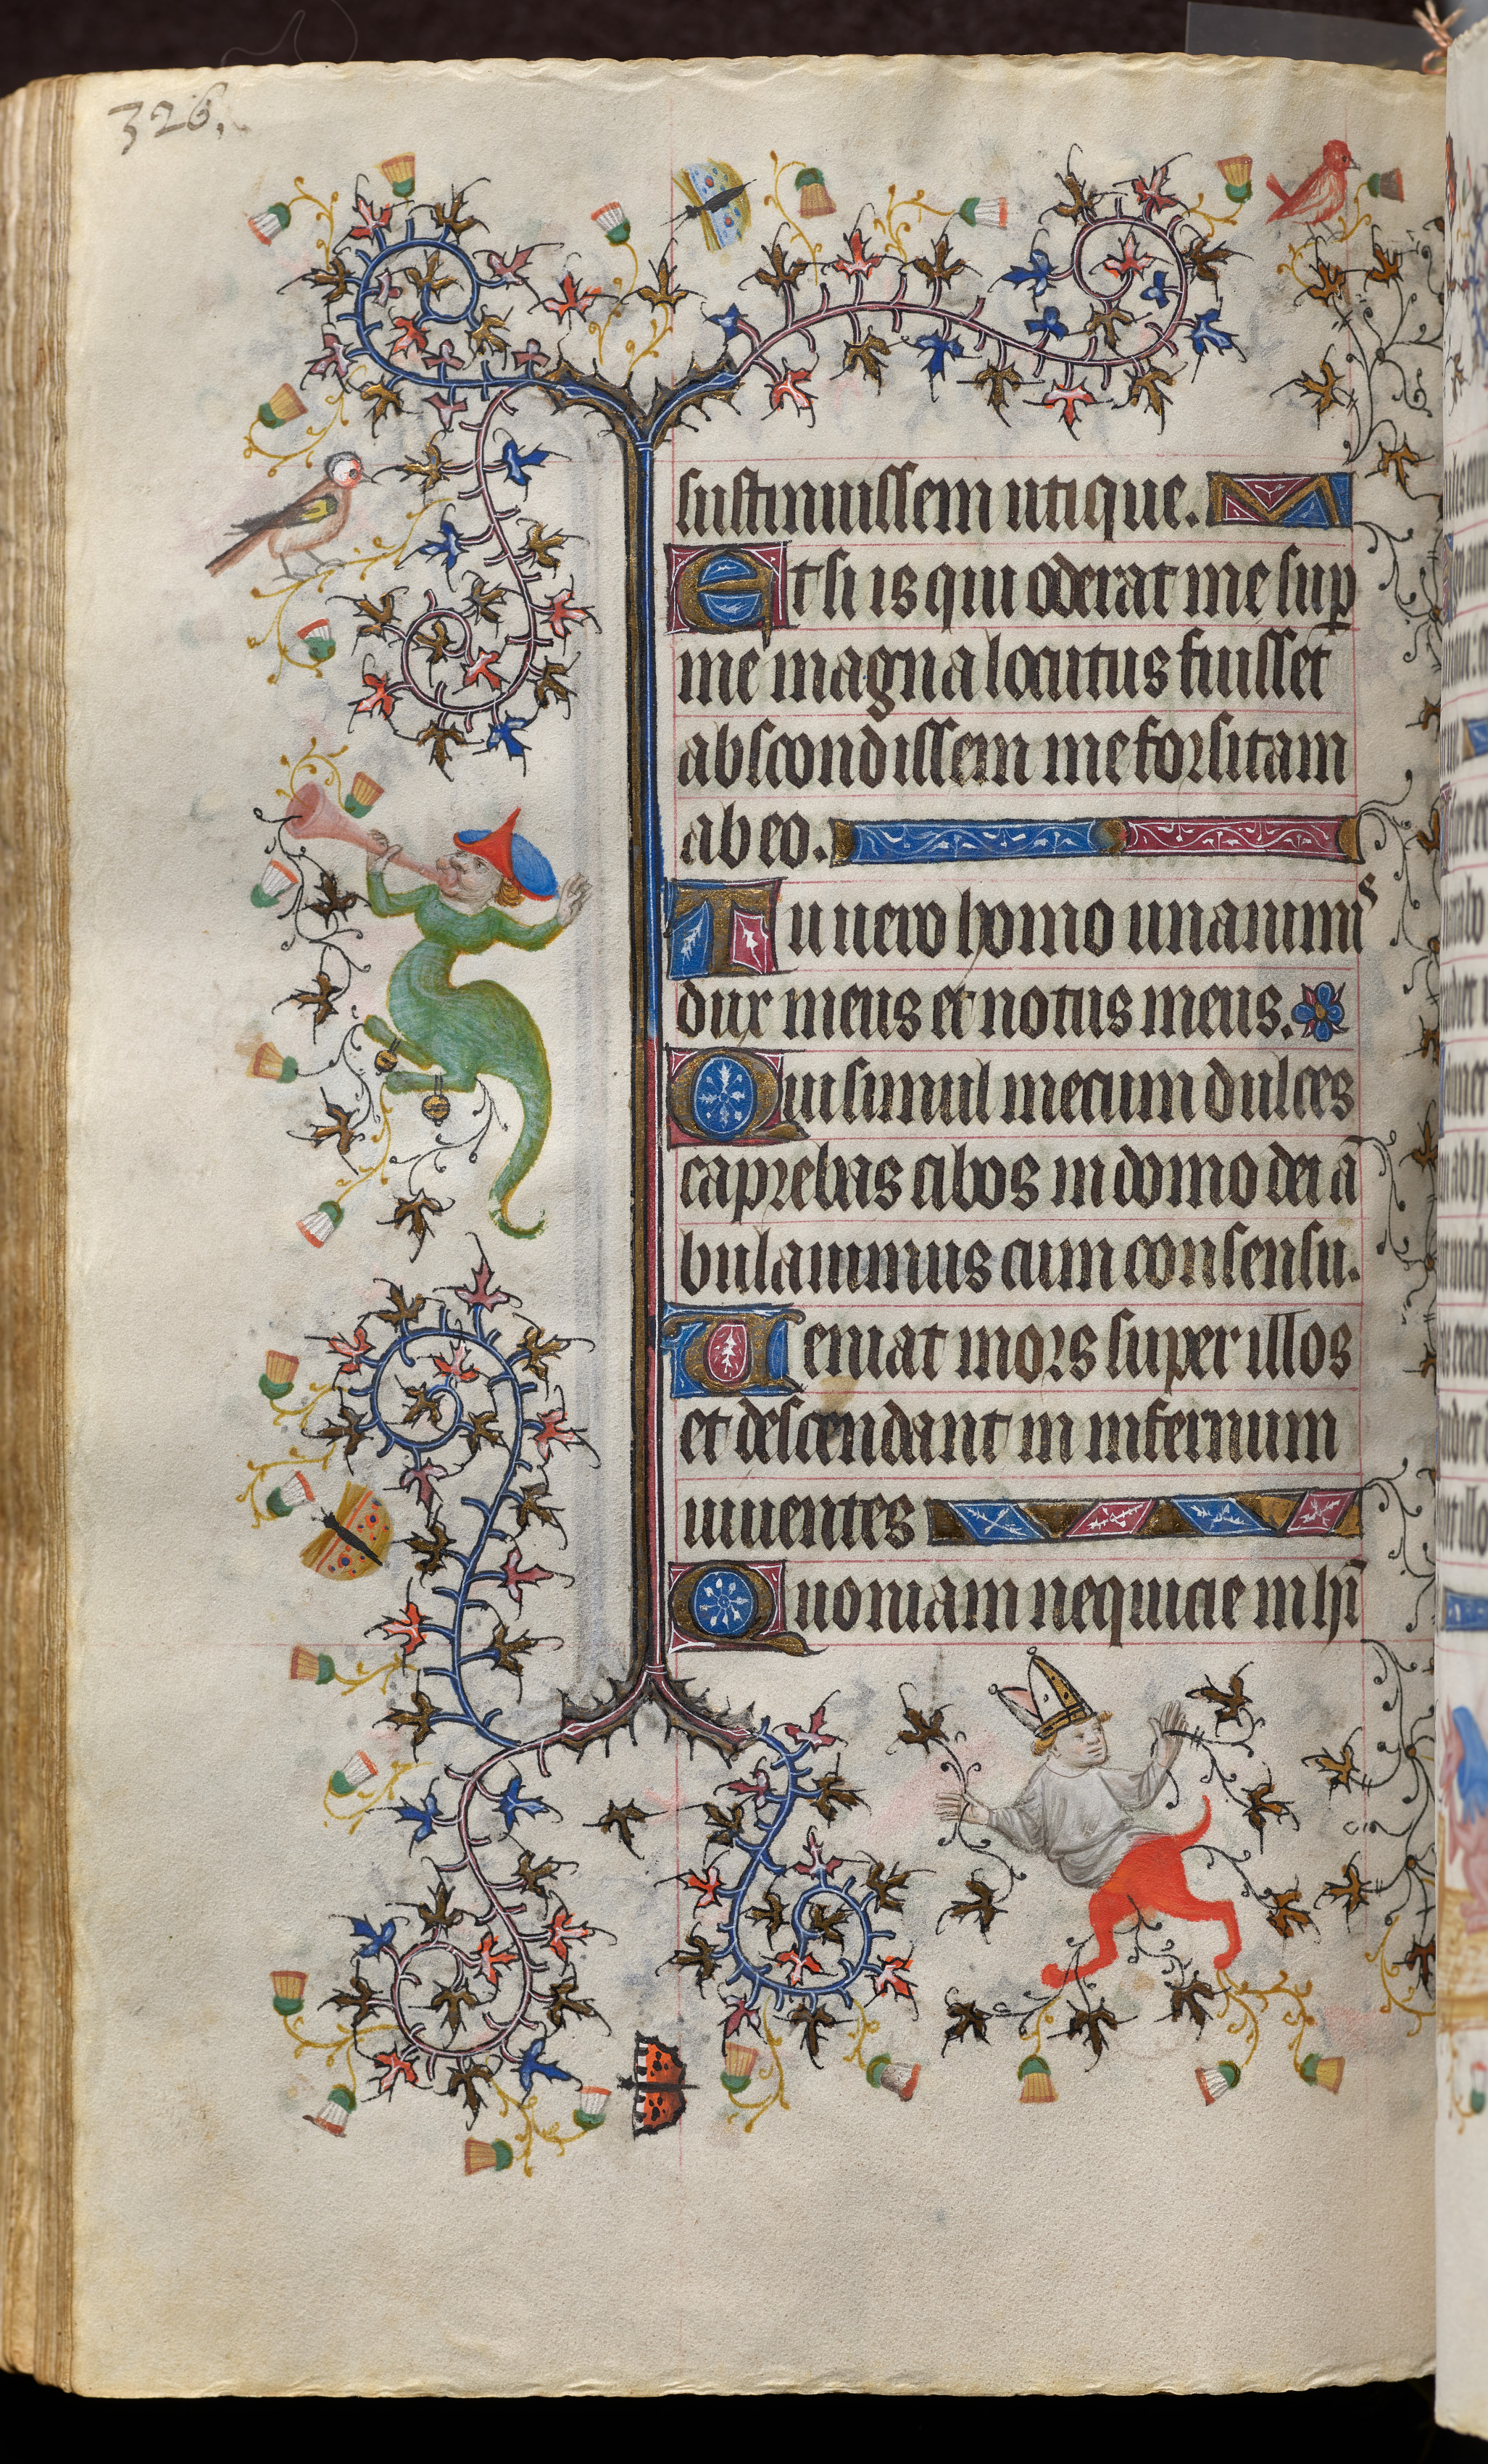 326.
sustinuissem utique.
Et si is qui oderat me sup
me magna locutus fuisset
abscondissem me forsitam
ab eo.
Tu uero homo unanimis
dux meus et notus meus.
Qui simul mecum dulces
capiebas cibos in domo dei ā
bulauimus cum consensu.
Ueniat mors super illos
et descendant in infernum
uiuentes
Quoniam nequicie in hī